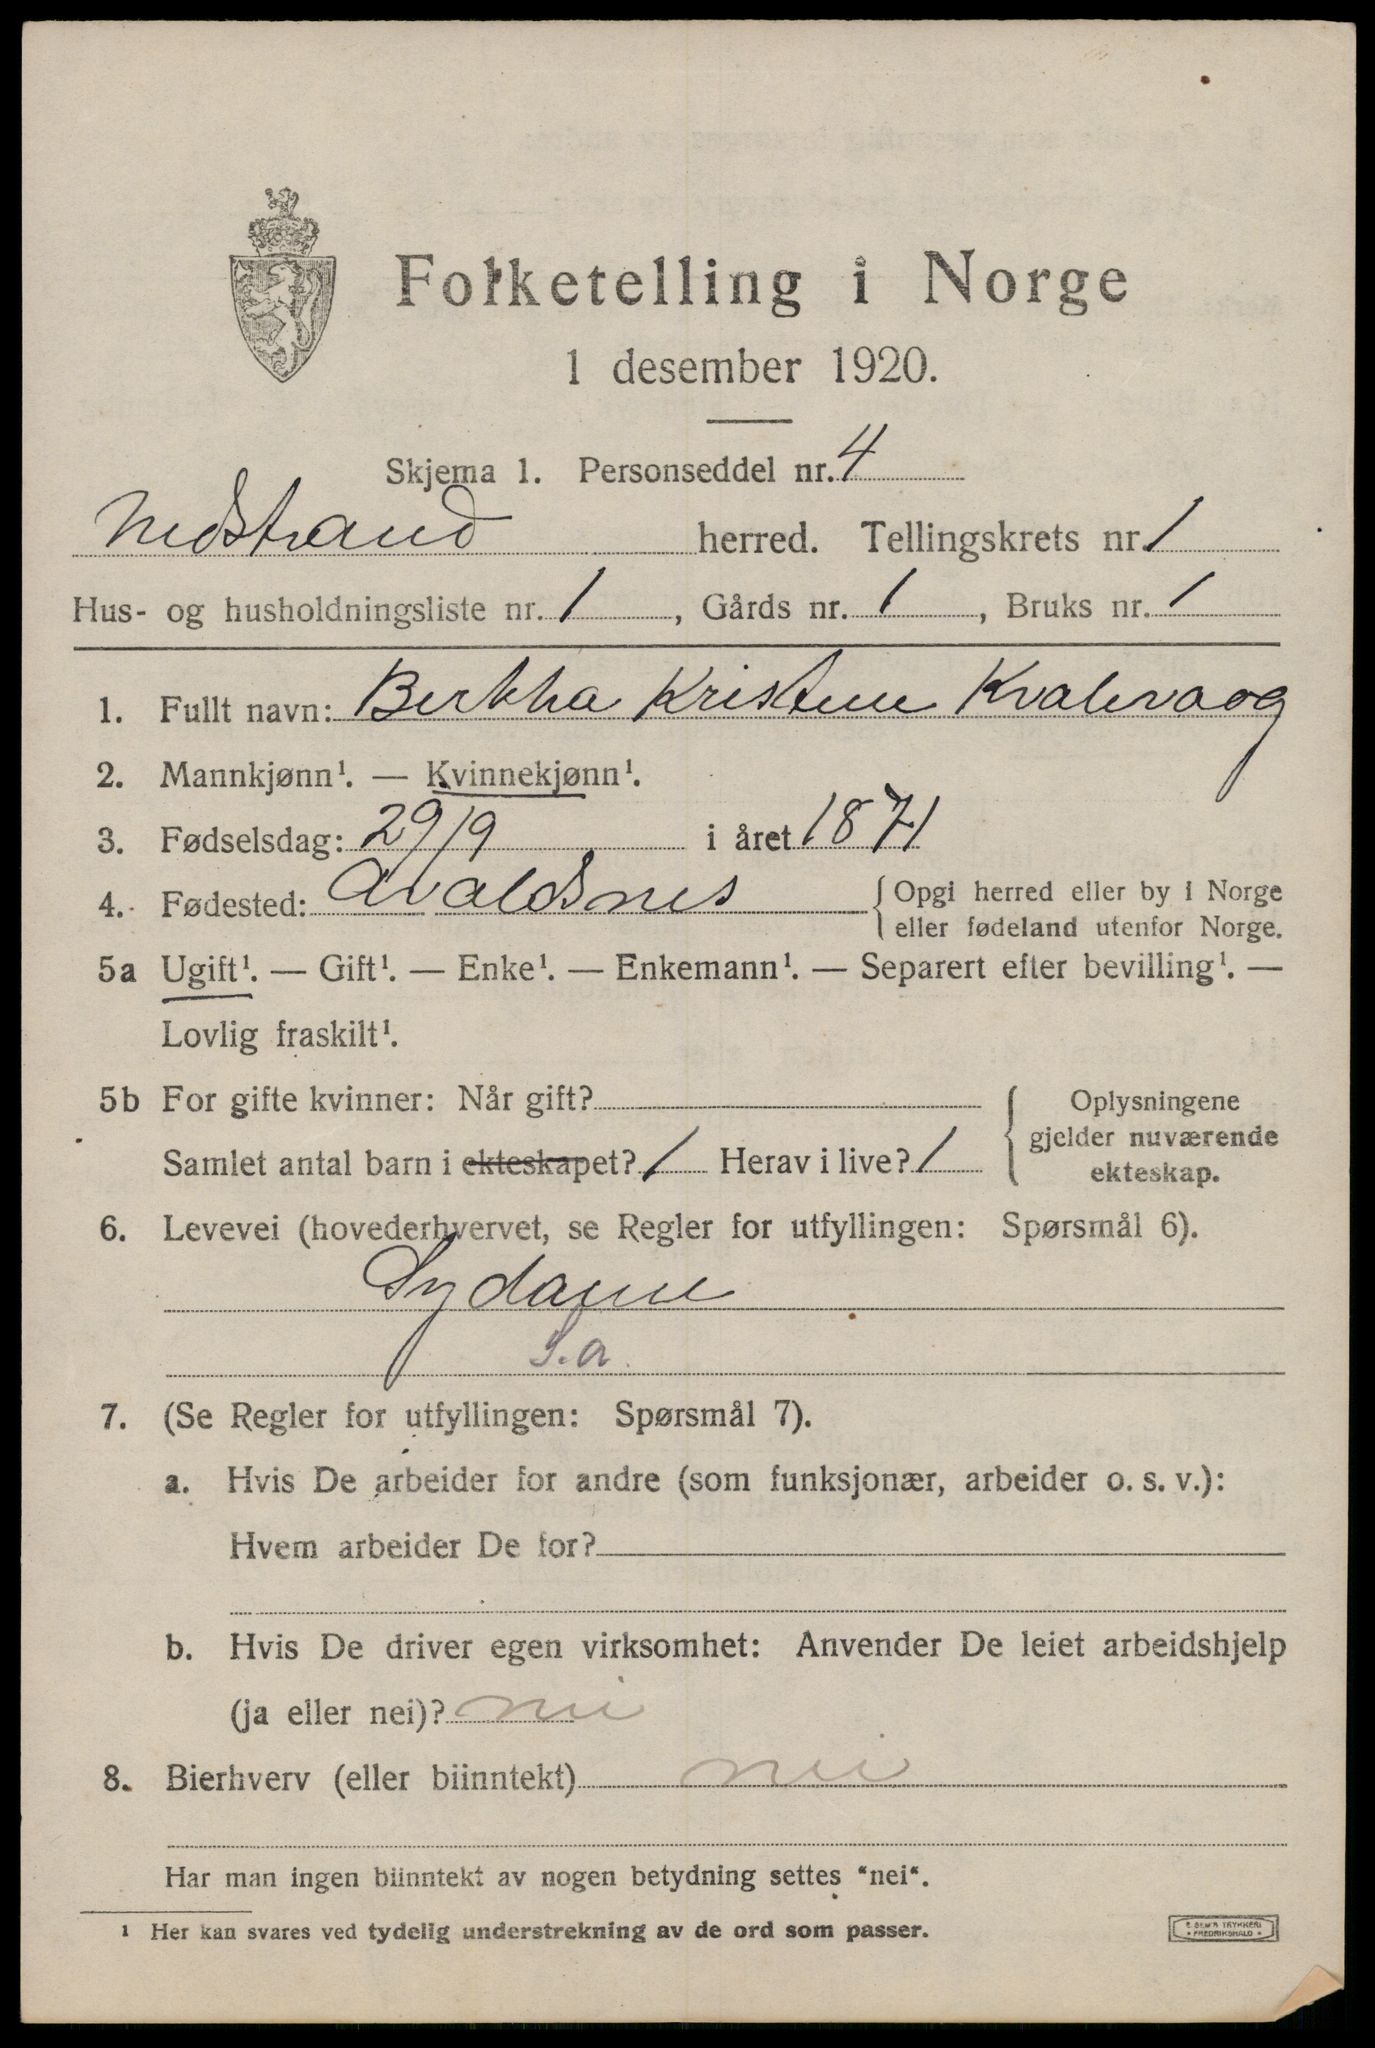 Folketelling i Norge
1 desember 1920.
Skjema 1. Personseddel nr. 4
Nedstrand herred. Tellingskrets nr. 1
Hus- og husholdningsliste nr. 1, Gårds nr. 1, Bruks nr. 1
1. Fullt navn: Berthha Kristene Kvalevaag
2. Mannkjønn¹. — Kvinnekjønn¹.
3. Fødselsdag: 29/9 i året 1871
4. Fødested: Avaldsnes {Opgi herred eller by i Norge
eller fødeland utenfor Norge.
5a Ugift¹. — Gift¹. — Enke¹. — Enkemann¹. — Separert efter bevilling¹. —
Lovlig fraskilt¹.
5b For gifte kvinner: Når gift? Oplysningene
gjelder nuværende
Samlet antal barn i ekteskapet? 1 Herav i live? 1
ekteskap.
6. Levevei (hovederhvervet, se Regler for utfyllingen: Spørsmål 6).
Sydame
S.a.
7. (Se Regler for utfyllingen: Spørsmål 7).
a. Hvis De arbeider for andre (som funksjonær, arbeider o. s. v.):
Hvem arbeider De for?
b. Hvis De driver egen virksomhet: Anvender De leiet arbeidshjelp
(ja eller nei)? nei
8. Bierhverv (eller biinntekt) nei
Har man ingen biinntekt av nogen betydning settes “nei“.
¹ Her kan svares ved tydelig understrekning av de ord som passer.
E SEM'S TRYKKERI
* FREDRIKSHALD *